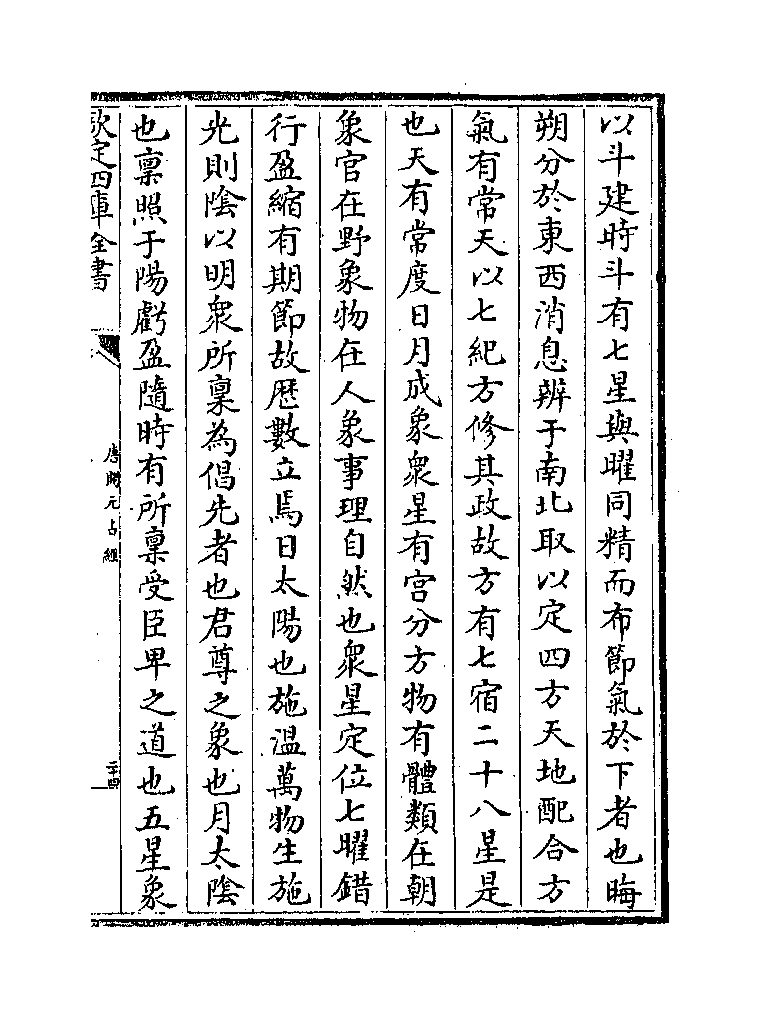 以斗建時斗有七星與曜同精而布節氣於下者也晦
朔分於東西消息辨于南北取以定四方天地配合方
氣有常天以七紀方修其政故方有七宿二十八星是
也天有常度日月成象衆星有宫分方物有體類在朝
象官在野象物在人象事理自然也衆星定位七曜錯
行盈縮有期節故歴數立焉日太陽也施温萬物生施
光則陰以明衆所稟為倡先者也君尊之象也月太陰
也稟照于陽虧盈隨時有所稟受臣卑之道也五星象
欽定四庫全書
唐開元占經
二十四